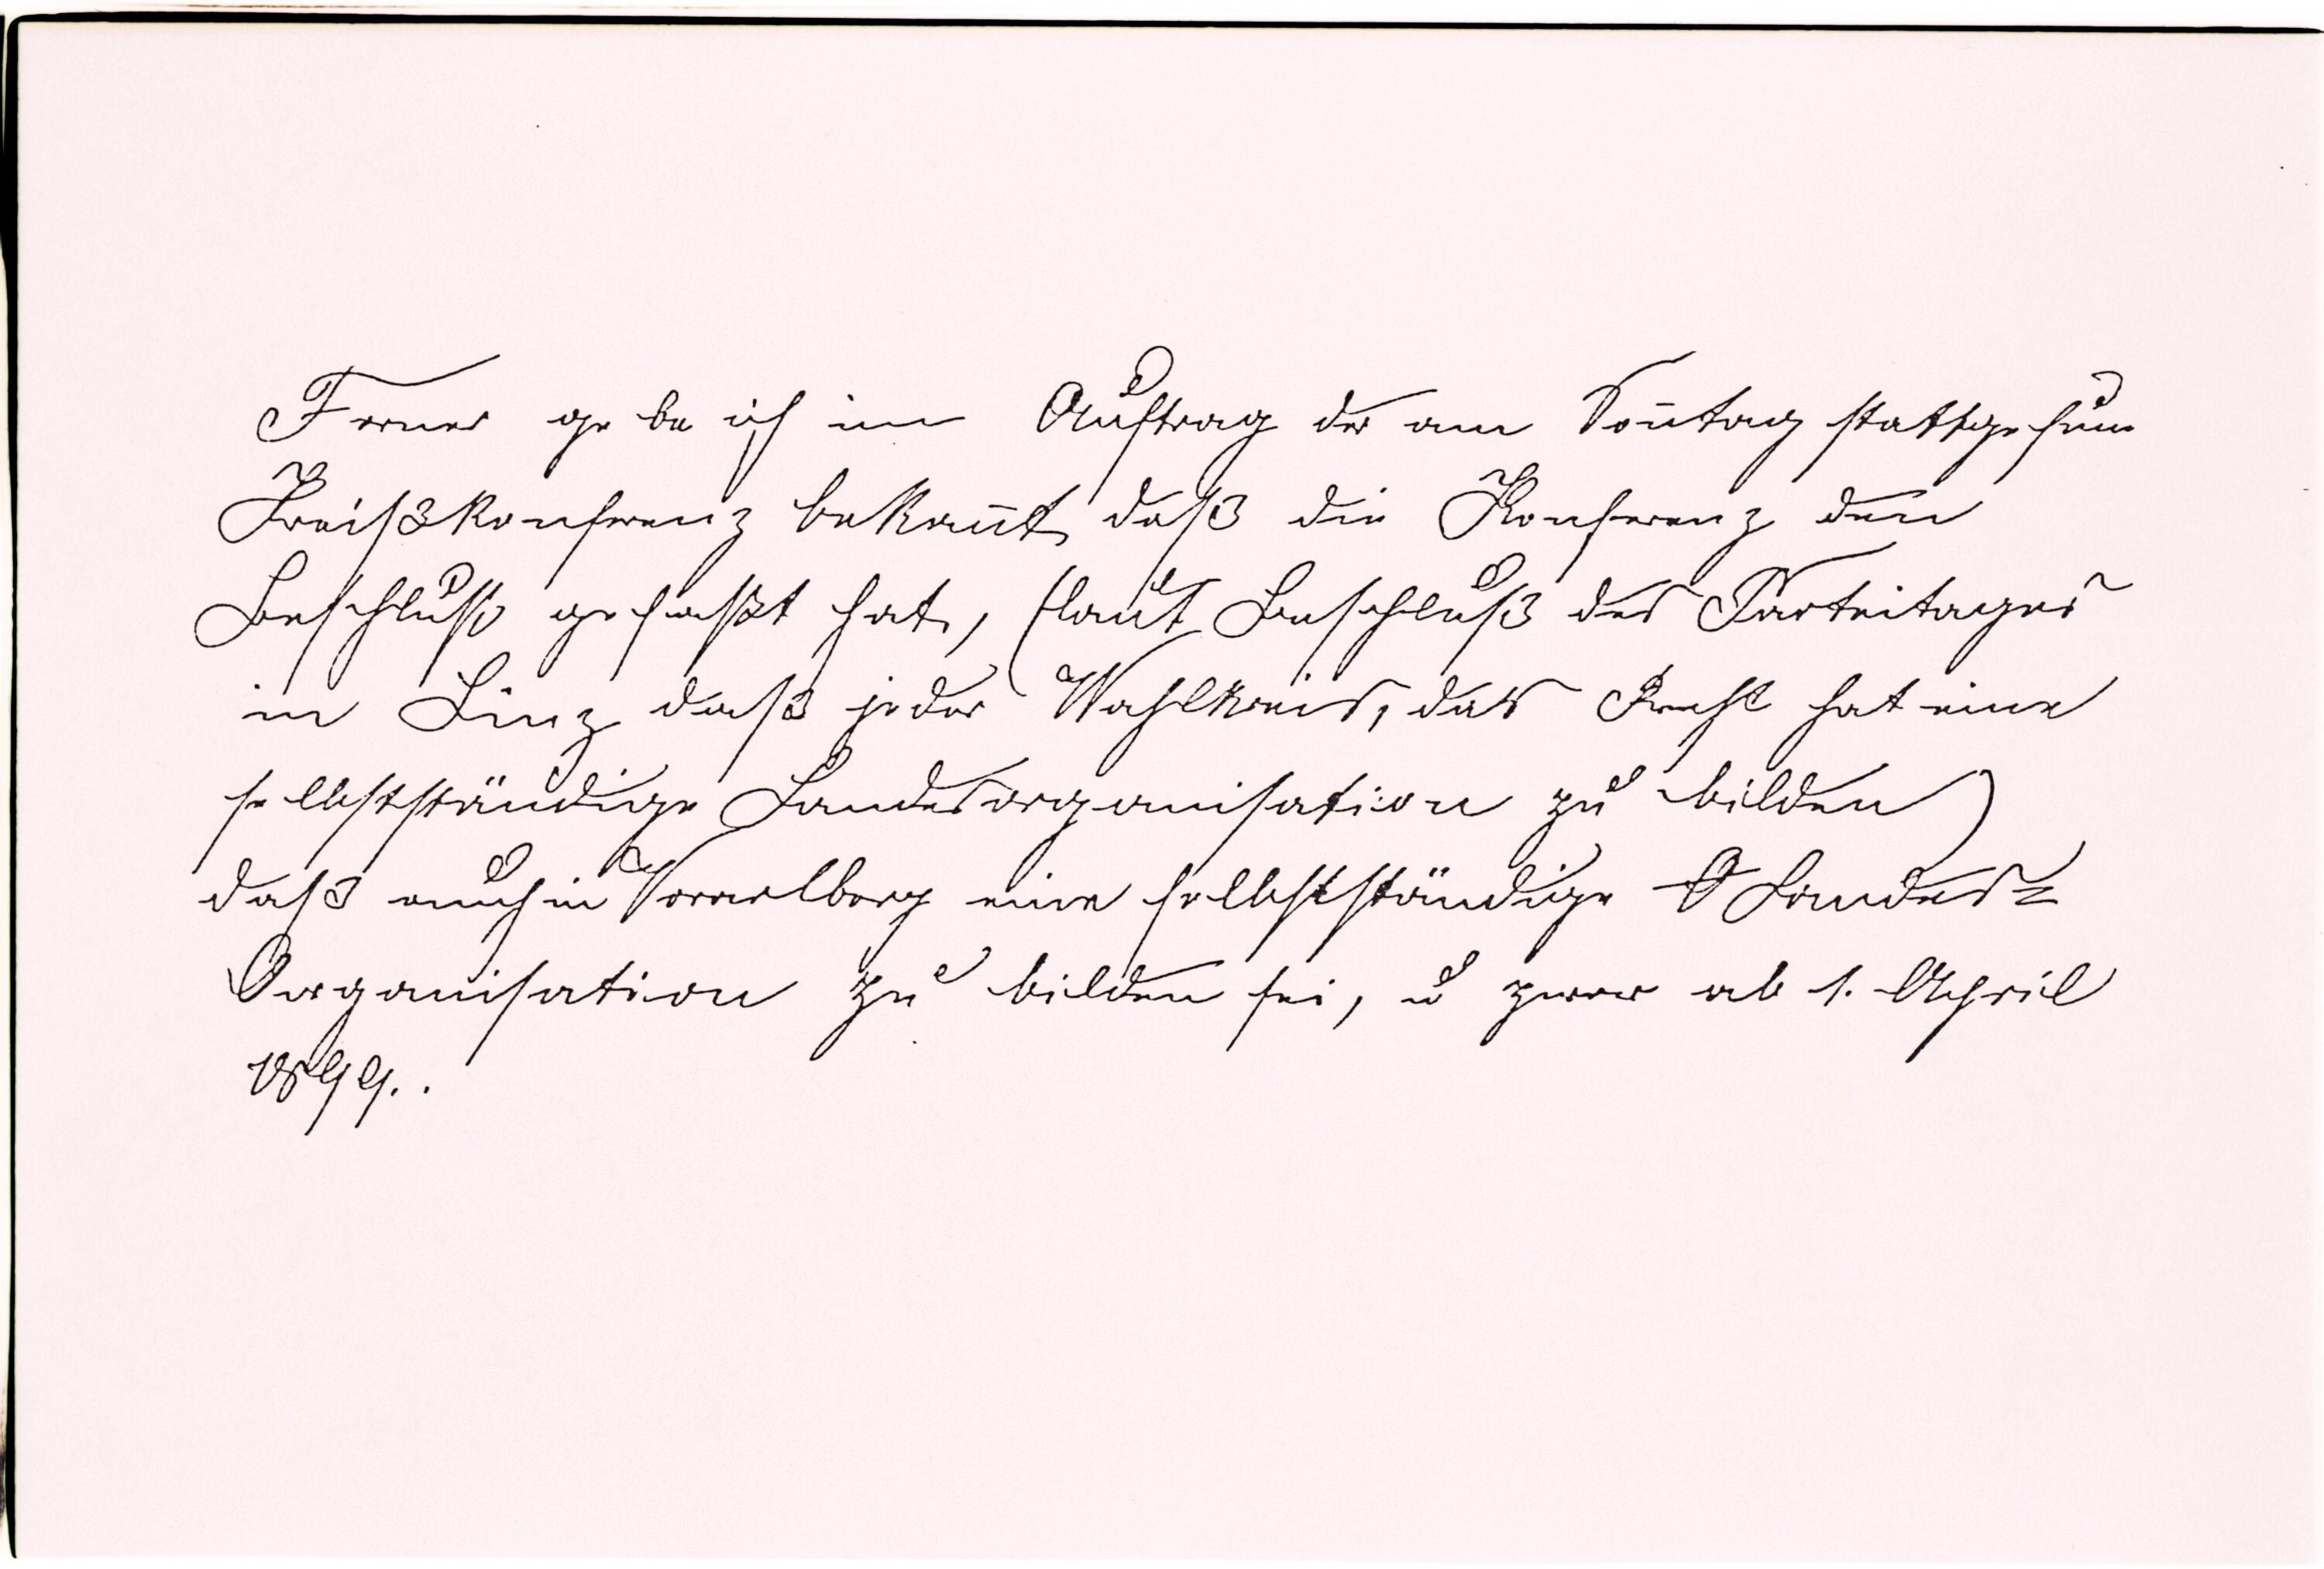 Ferner gebe ich im Auftrag der am Soñtag stattgefun
Kreißkonferenz bekañt, daß die Konferenz den
Beschluß gefaßt hat, (laut Beschluß des Parteitages
in Linz daß jeder Wahlkreis, das Recht hat eine
selbstständige Landesorganisation zu bilden)
daß auch in Vorarlberg eine selbstständige O Landes=
Organisation zu bilden sei, u zwar ab 1. April
1899..